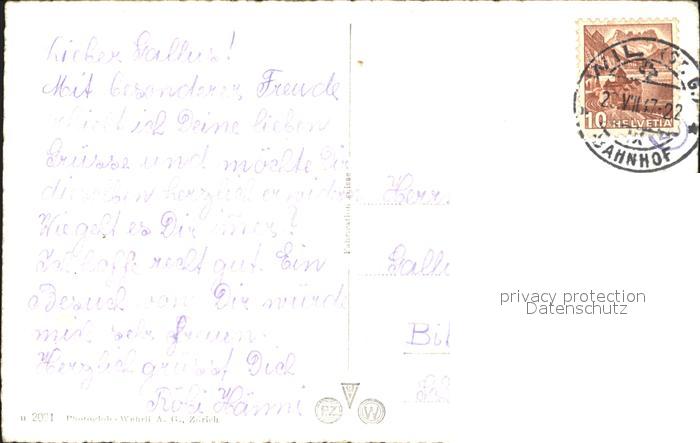 Lieber Gallus!
Mit besonderer Freude
erhielt ich Deine lieben
Grüsse und möchte Dir
dieselben herzlich erwidern
Wie geht es Dir immer?
Ich hoffe recht gut. Ein
Besuch von Dir würde
mich sehr freuen.
Herzlich grüsst Dich
Röbi Hänni
u 2021 Photoglob-Wehrli A. G., Zürich
Fabrication suisse
PZ
W
WIL (ST. G.
VII.47-22
BAHNHOF
10 HELVETIA
Herr
Gallu
Bil
privacy protection
Datenschutz